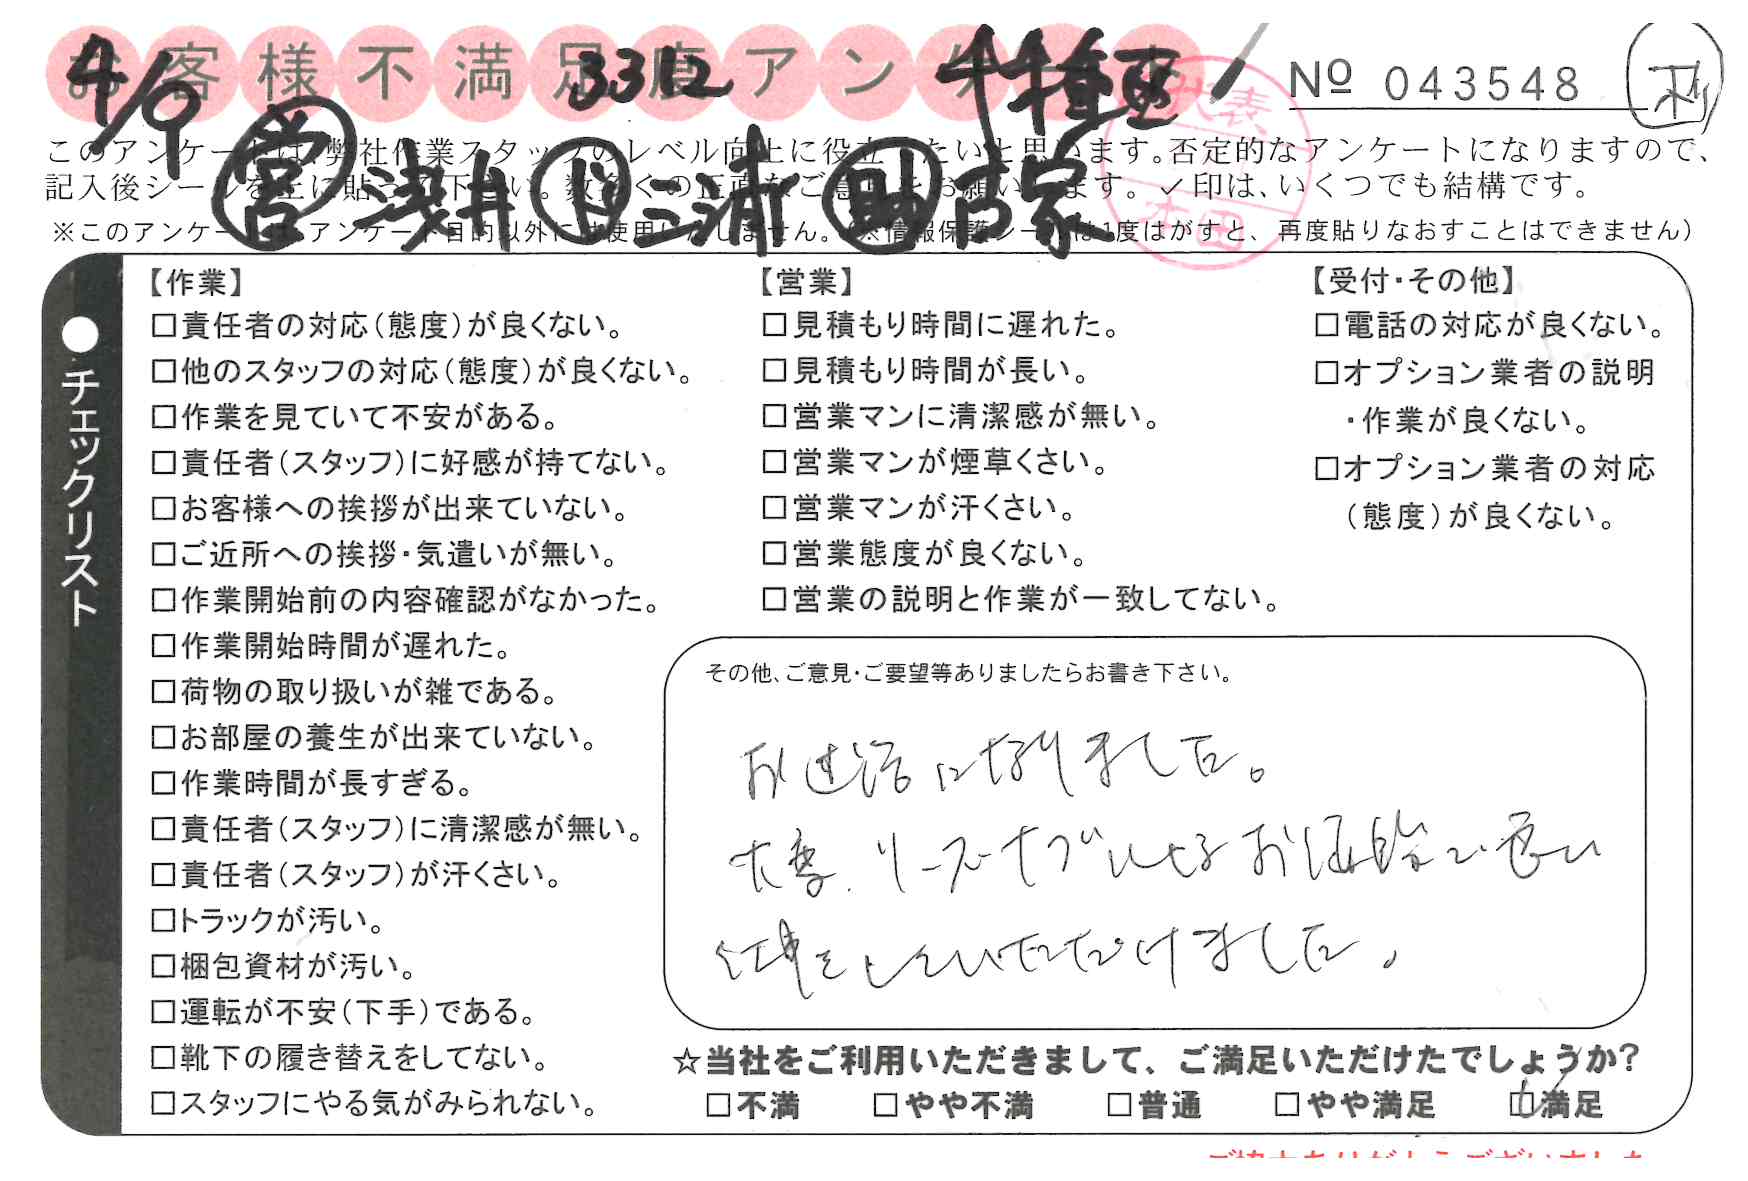 お客様不満足度アンケート
4/9 3312 千種区
No 043548
代表
木田
このアンケートは、弊社作業スタッフのレベル向上に役立てたいと思います。否定的なアンケートになりますので、
記入後シールを上に貼って下さい。数多くの正直なご意見をお願いします。✓印は、いくつでも結構です。
営 浅井 ド 三浦 助 古家
※このアンケートは、アンケート目的以外には使用いたしません。(※情報保護シールは1度はがすと、再度貼りなおすことはできません)
●チェックリスト
【作業】
□責任者の対応(態度)が良くない。
□他のスタッフの対応(態度)が良くない。
□作業を見ていて不安がある。
□責任者(スタッフ)に好感が持てない。
□お客様への挨拶が出来ていない。
□ご近所への挨拶・気遣いが無い。
□作業開始前の内容確認がなかった。
□作業開始時間が遅れた。
□荷物の取り扱いが雑である。
□お部屋の養生が出来ていない。
□作業時間が長すぎる。
□責任者(スタッフ)に清潔感が無い。
□責任者(スタッフ)が汗くさい。
□トラックが汚い。
□梱包資材が汚い。
□運転が不安(下手)である。
□靴下の履き替えをしてない。
□スタッフにやる気がみられない。
【営業】
□見積もり時間に遅れた。
□見積もり時間が長い。
□営業マンに清潔感が無い。
□営業マンが煙草くさい。
□営業マンが汗くさい。
□営業態度が良くない。
□営業の説明と作業が一致してない。
【受付・その他】
□電話の対応が良くない。
□オプション業者の説明
・作業が良くない。
□オプション業者の対応
(態度)が良くない。
その他、ご意見・ご要望等ありましたらお書き下さい。
お世話になりました。
大変、リーズナブルなお値段で良い
仕事をしていただけました。
☆当社をご利用いただきまして、ご満足いただけたでしょうか?
□不満 □やや不満 □普通 □やや満足 ☑満足
ご協力ありがとうございました